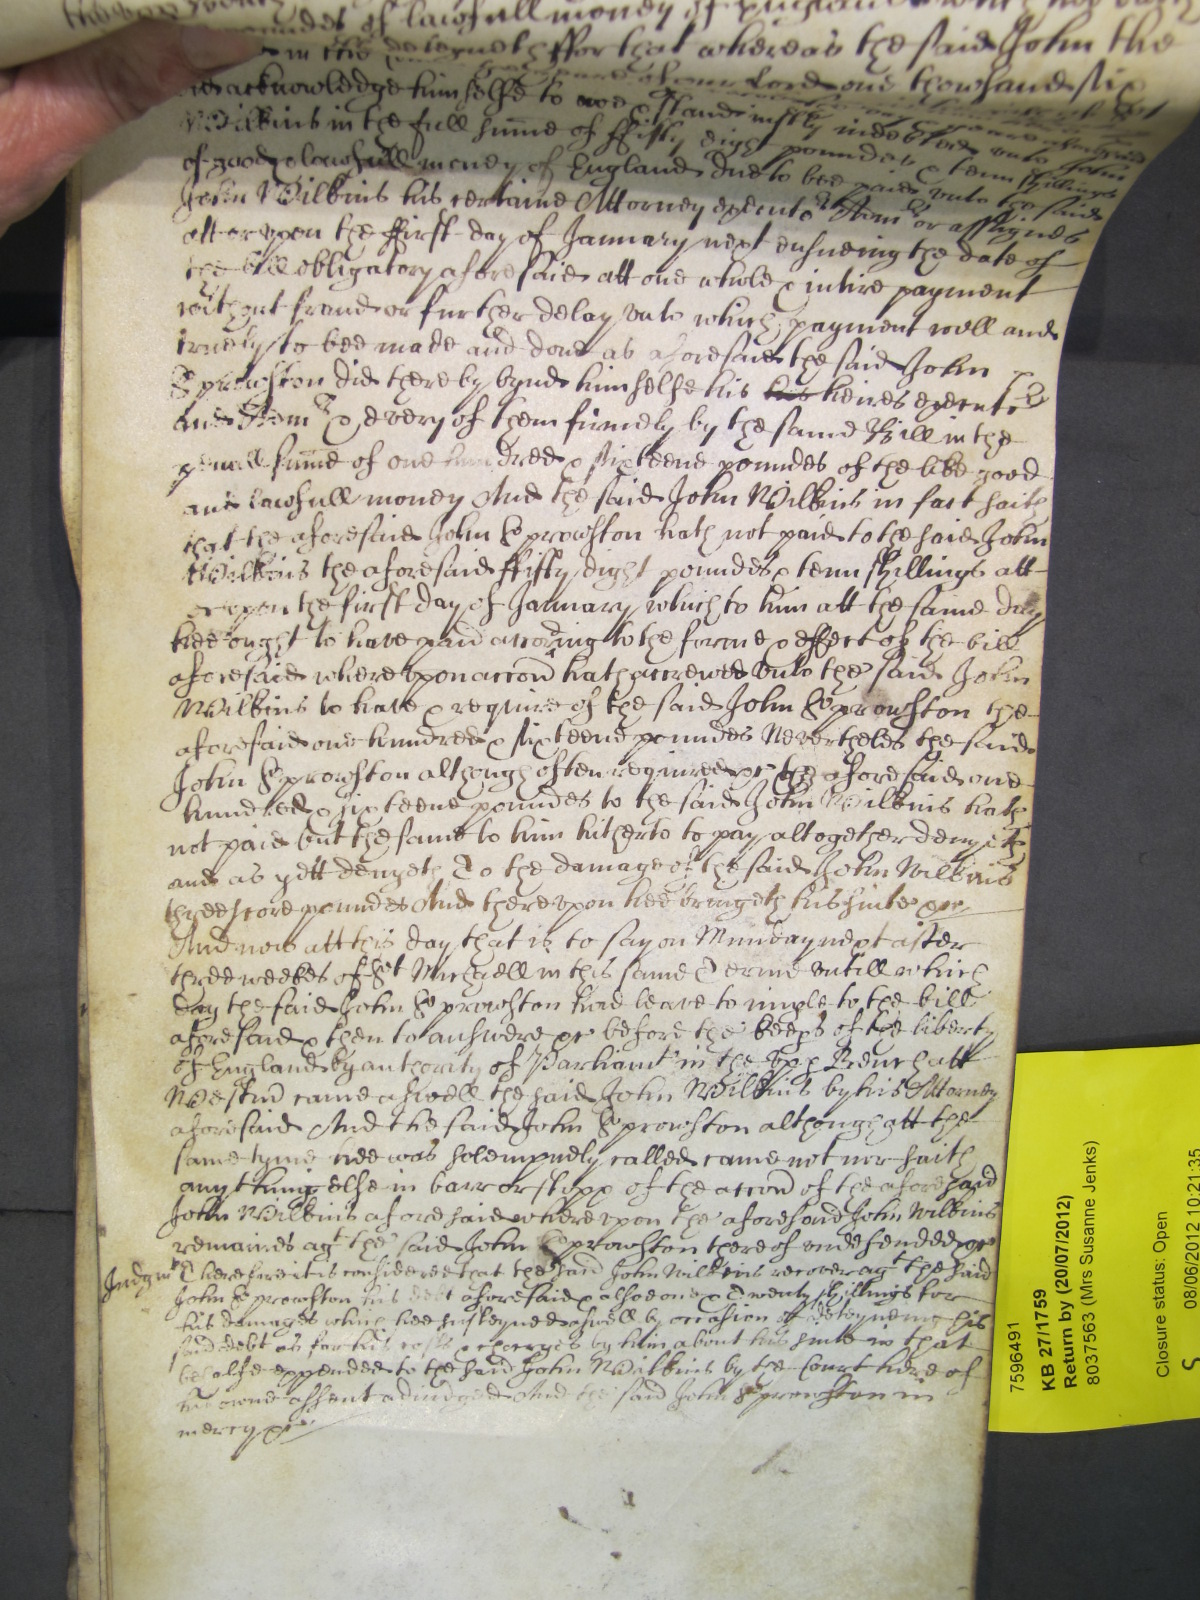 poundes of lawfull money of England which hee oweth
in this deteyneth ffor that whereas the said John the
yeare of our Lord one thowsand six
did acknowledge himselfe to owe & stand iustly indebted vnto John
Wilkins in the full sume of ffifty eight poundes & tenn shillings
of good & lawfull money of England due to bee paid vnto the said
John Wilkins his certaine Attorney executors Admrs or assignes
att or vpon the ffirst day of January next ensueing the date of
the bill obligatory aforesaid att one whole & intire payment
without fraud or further delay vnto which payment well and
truely to bee made and done as aforesaid the said John
Sprowston did thereby bynd himselfe his his heires executrs
and Admrs & every of them firmely by the same Bill in the
penall sume of one hundred & sixteene poundes of the like good
and lawfull money And the said John Wilkins in fact saith
that the aforesaid John Sprowston hath not paid to the said John
Wilkins the aforesaid ffifty eight poundes & tenn shillings att
or vpon the first day of January which to him att the same day
hee ought to have paid according to the forme & effect of the bill
aforesaid wherevpon accon hath accrewed vnto the said John
Wilkins to have & require of the said John Sprowston the
aforesaid one hundred & sixteene poundes Nevertheles the said
John Sprowston although often required &c the aforesaid one
hundred & sixteene poundes to the said John Wilkins hath
not paid but the same to him hitherto to pay altogether denyeth
and as yett denyeth To the damage of the said John Wilkins
threescore poundes And therevpon hee bringeth his suite &c
And now att this day that is to say on Munday next after
three weekes of St Michaell in this same Terme vntill which
day the said John Sprowston had leave to imple to the bill
aforesaid & then to answere &c before the keeps of the liberty
of England by authority of Parliamt in the vpp Bench att
Westmr came aswell the said John Wilkins by his Attorney
aforesaid And the said John Sprowston although att the
same tyme hee was solempnely called came not nor saith
any thing else in barr or stopp of the accon of the aforesaid
John Wilkins aforesaid wherevpon the aforesaid John Wilkins
remaines agt the said John Sprowston thereof vndefended &c
Judgmt Therefore it is considered that the said John Wilkins recover agt the said
John Sprowston his debt aforesaid & also one & Twenty shillings for
his damages which hee susteyned aswell by occasion of deteyneing his
said debt as for his costs & charges by him about his suite in that
behalfe expended to the said John Wilkins by the Court here of
his owne assent adiudged And the said John Sprowston in
mercy &c
7596491
KB 27/1759
Return by (20/07/2012)
8037563 (Mrs Susanne Jenks)
Closure status: Open
08/06/2012 10:21:35
S